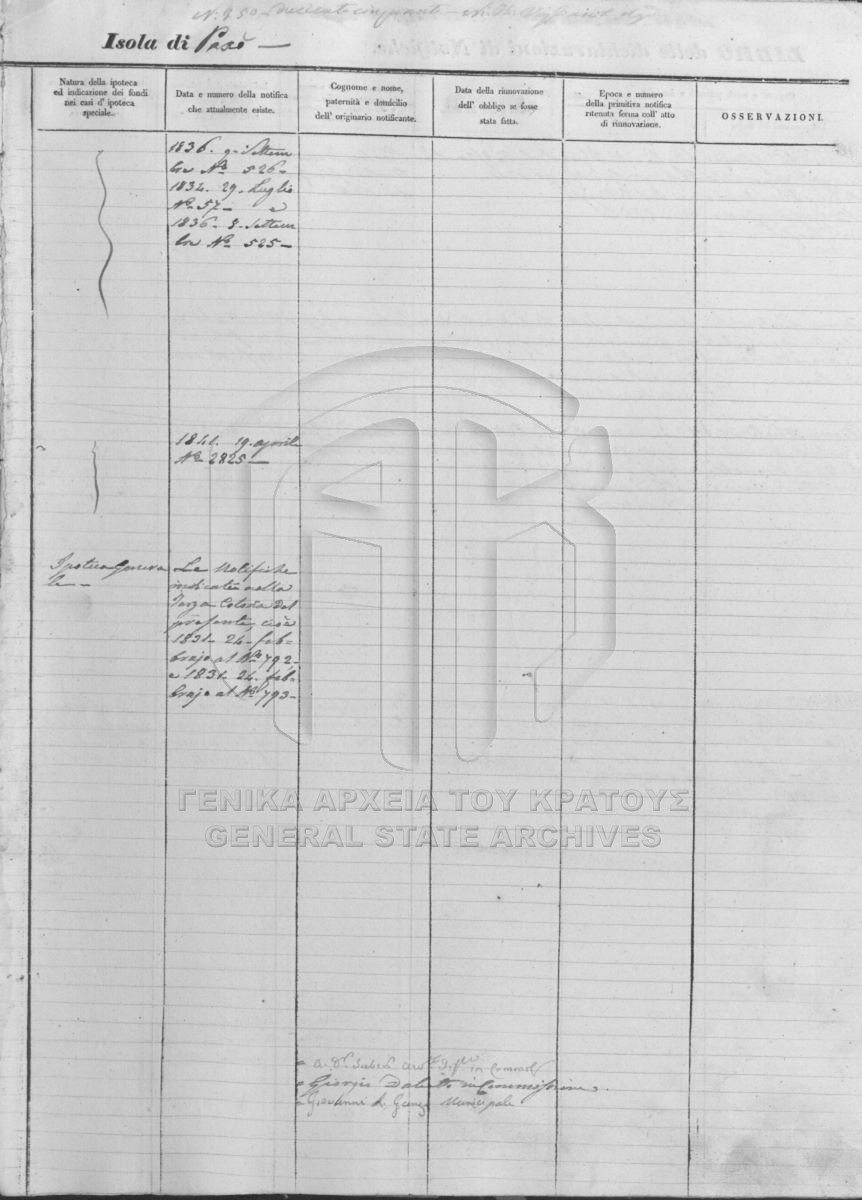 N. 250 - duecento cinquanta -
Isola di Paxò -
Natura della ipoteca
ed indicazione dei fondi
nei casi d' ipoteca
speciale.
Data e numero della notifica
che attualmente esiste.
Cognome e nome,
paternità e domicilio
dell' originario notificante.
Data della rinnovazione
dell' obbligo se fosse
stata fatta.
Epoca e numero
della primitiva notifica
ritenuta ferma coll' atto
di rinnovazione.
OSSERVAZIONI.
1836. 9. Settem
bre No. 526-
1834. 29. Luglio
No. 57- e
1836- 8- Settem
bre No. 525-
1841. 19. aprile
No. 2825-
Ipoteca Genera
le - -
Le Notifiche
indicate nella
Terza Colona del
presente, cioè
1831- 24- feb-
brajo al No. 792-
e 1831- 24. feb-
brajo al No. 793-
ΓΕΝΙΚΑ ΑΡΧΕΙΑ ΤΟΥ ΚΡΑΤΟΥΣ
GENERAL STATE ARCHIVES
Giorgio in Commissione
Giovanni Municipale